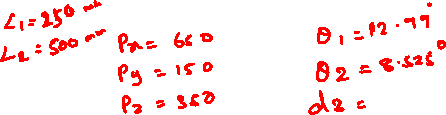 L1=250 mm
L2=500 mm
Px= 660
Py = 150
Pz = 350
θ1=12.99°
θ2=8.525°
d2 =